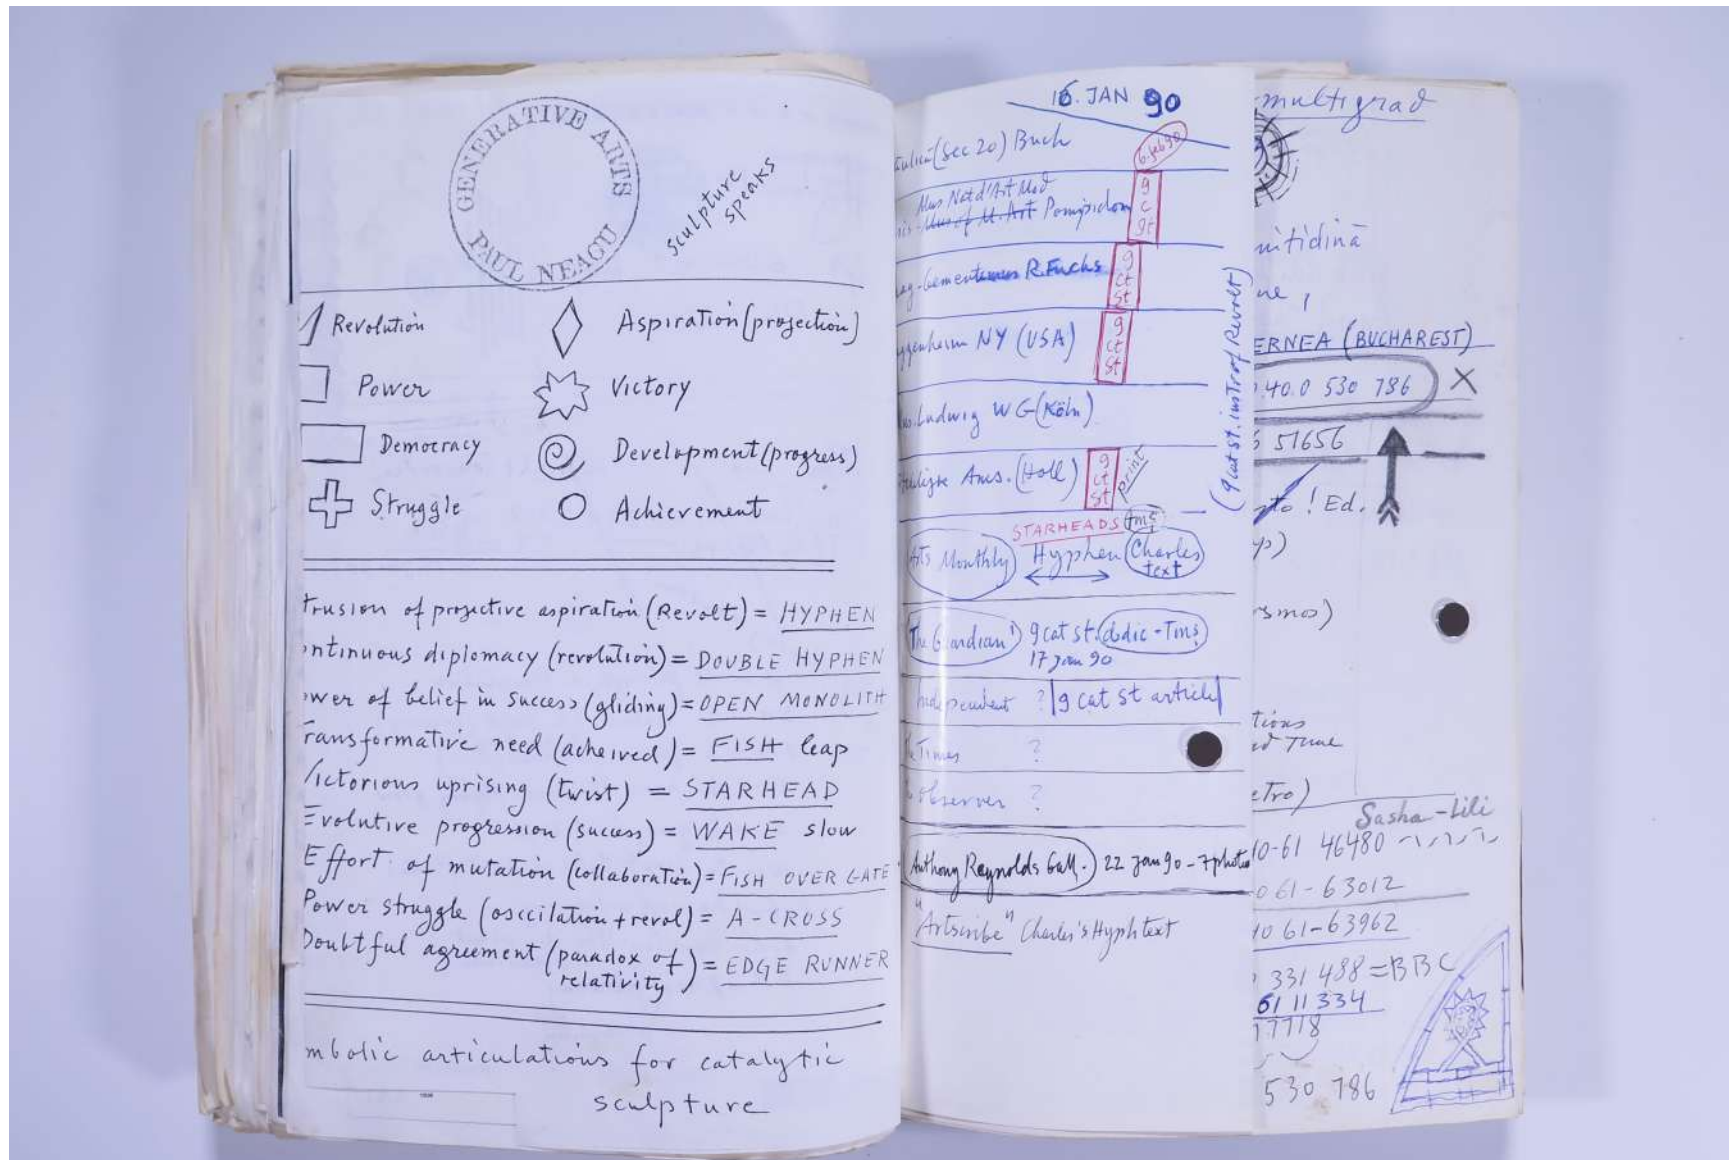 GENERATIVE ARTS
PAUL NEAGU
sculpture
speaks
Revolution
Aspiration (projection)
Power
Victory
Democracy
Development (progress)
Struggle
Achievement
trusion of projective aspiration (Revolt) = HYPHEN
ntinuous diplomacy (revolution) = DOUBLE HYPHEN
wer of belief in success (gliding) = OPEN MONOLITH
Transformative need (acheived) = FISH leap
Victorious uprising (twist) = STARHEAD
Evolutive progression (success) = WAKE slow
Effort of mutation (collaboration) = FISH OVER GATE
Power struggle (osccilation + revol) = A-CROSS
Doubtful agreement (paradox of
relativity) = EDGE RUNNER
mbolic articulations for catalytic
sculpture
16. JAN 90
(sec 20) Buch
6. feb 90
Mus Nat d'Art Mod
Mus of M. Art Pompidou
g
c
gt
R. Fuchs
g
ct
st
ggenheim NY (USA)
g
ct
st
Ludwig WG (Köln)
Ams. (Holl)
g
ct
st
print
(g cat st. instr of Revolt)
STARHEADS Tms
Arts Monthly
Hyphen
Charles
text
The Guardian
g cat st. dedic - Tms
17 jan 90
Independent ? g cat st article
The Times ?
The Observer ?
Anthony Reynolds Gall. 22 Jan 90 - 7 photos
"Artscribe" Charles's Hyph text
multigrad
ntidină
ne,
ERNEA (BUCHAREST)
.40.0 530 786 X
51656
to! Ed.
smos)
tions
nd Time
etro)
Sasha-Lili
10-61 46480
061-63012
4061-63962
331 488 = BBC
61 11 334
17718
530 786